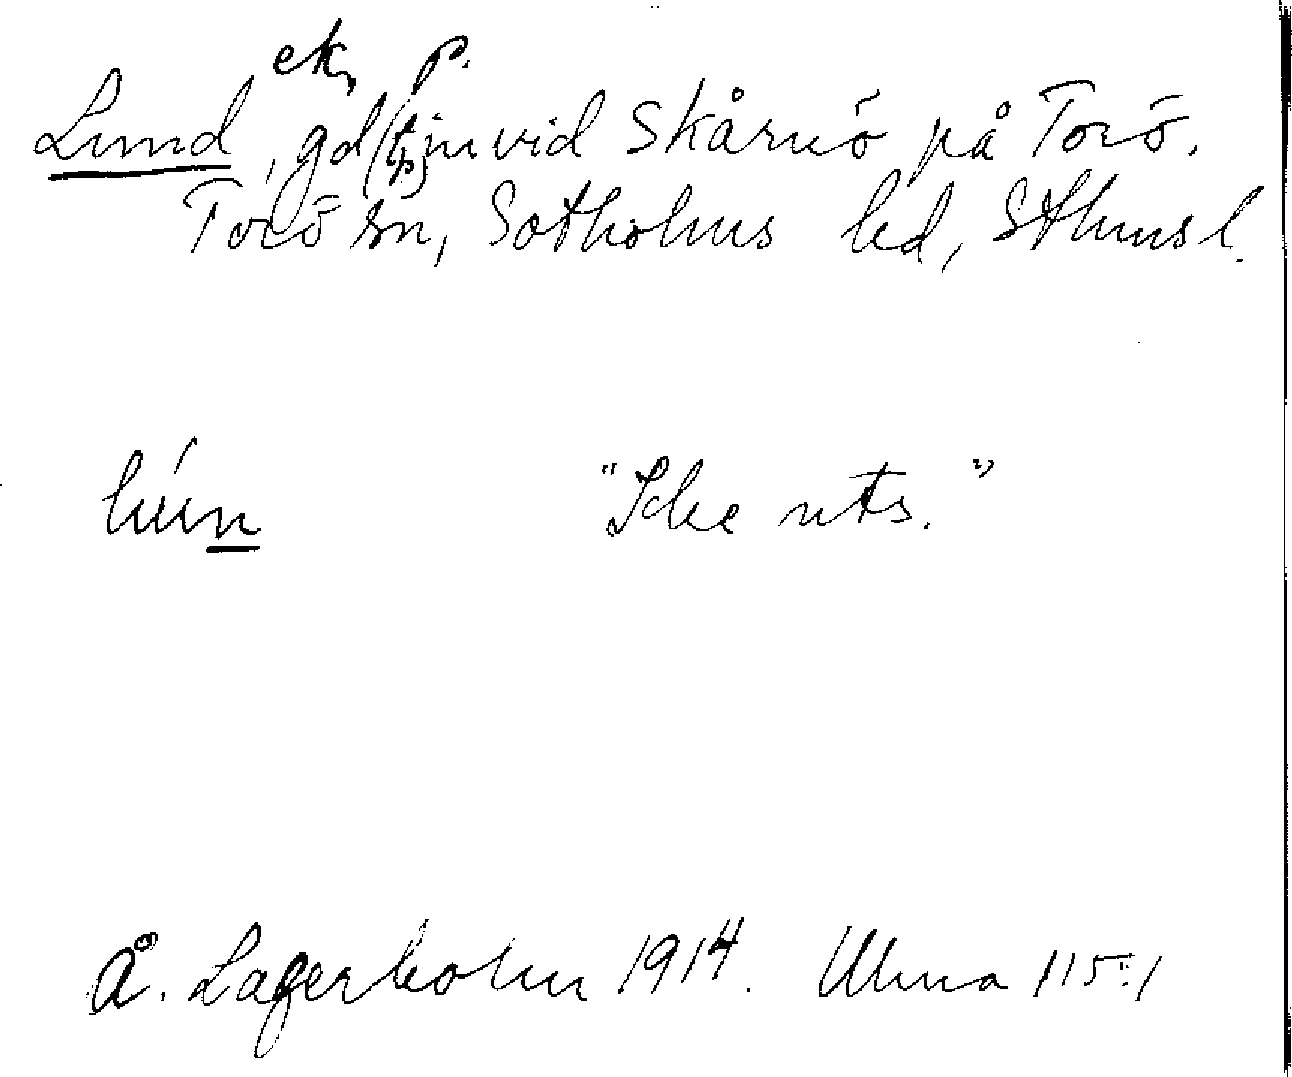 ek, p.
Lund, gd (tp) in vid Skårnö på Torö.
Torö sn, Sotholms hd, Sthmsl.
lún "Icke uts."
Å. Lagerholm 1914. Ulma 115:1